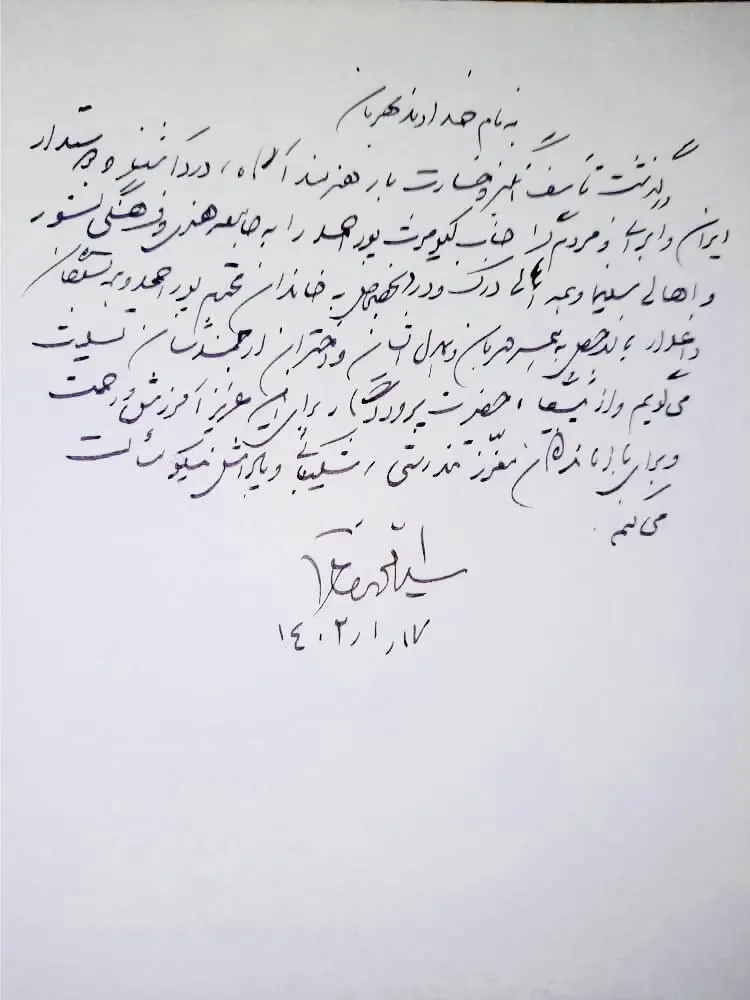 به نام خداوند مهربان
درگذشت تأسف انگیز و خسارت بار هنرمند آگاه، دردآشنا و دوستدار
ایران و ایرانی و مردم گرا جناب کیومرث پوراحمد را به جامعه هنری و فرهنگی کشور
و اهالی سینما و همه اهالی درک و درد بخصوص به خاندان محترم پوراحمد و بستگان
داغدار بالاخص به همسر مهربان و دختران ارجمندشان تسلیت
می گویم و از پیشگاه حضرت پروردگار برای آن عزیز آمرزش و رحمت
و برای بازماندگان معزز تندرستی، شکیبائی و پاداش نیکو مسألت
می کنم.
سید محمد خاتمی
۱۴۰۲ر۱ر۱۷